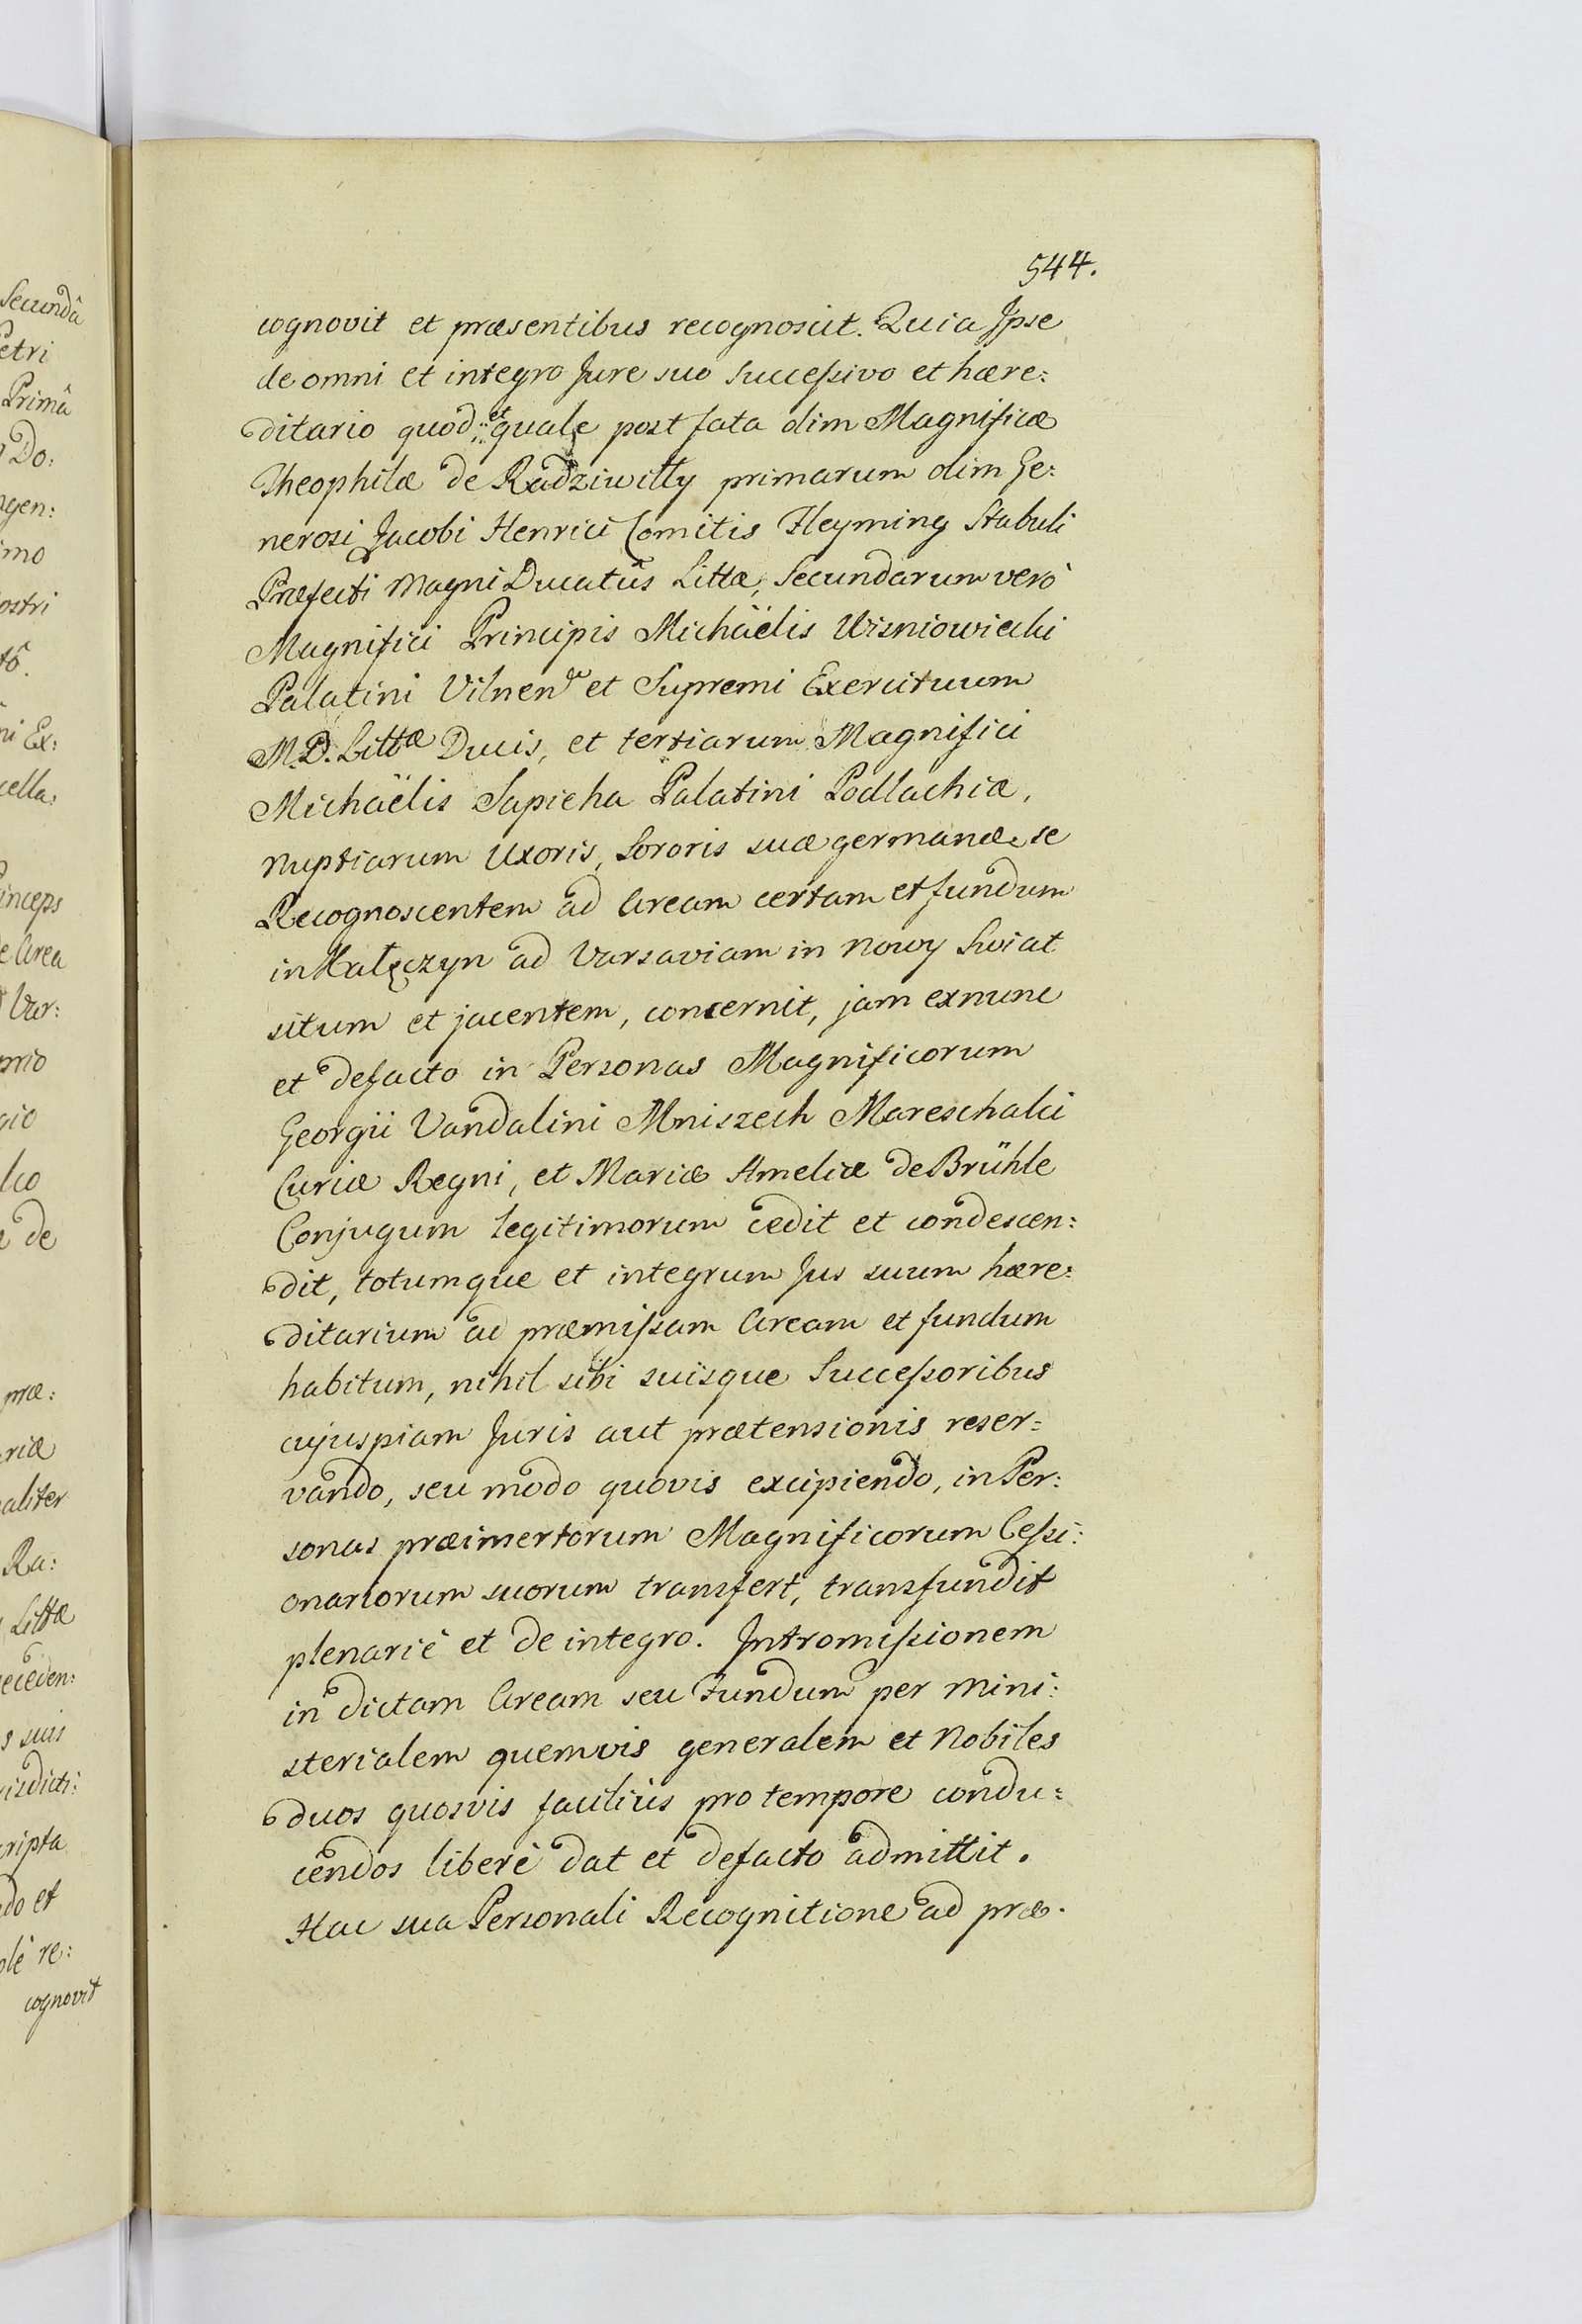 544.
cognovit et præsentibus recognoscit. Quia Ipse
de omni et integro Jure suo Successivo et hære:
ditario quod et quale post fata olim Magnificæ
Theophilæ de Radziwiłły primarum olim Ge:
nerosi Jacobi Henrici Comitis Fleyming Stabuli
Præfecti Magni Ducatûs Littæ, Secundarum verò
Magnifici Principis Michäelis Wisniowiecki
Palatini Vilnen et Supremi Exercituum
M.D. Littæ Ducis, et tertiarum Magnifici
Michäelis Sapieha Palatini Podlachiæ,
Nuptiarum Uxoris, Sororis suæ germanæ, se
Recognoscentem ad Aream certam et fundum
in Kałęczyn ad Varsaviam in Nowy Swiat
situm et jacentem, concernit, jam exnunc
et defacto in Personas Magnificorum
Georgii Vandalini Mniszech Mareschalci
Curiæ Regni, et Mariæ Ameliæ de Brühle
Conjugum legitimorum cedit et condescen:
dit, totumque et integrum Jus suum hære:
ditarium ad præmissam Aream et fundum
habitum, nihil sibi suisque Successoribus
cujuspiam Juris aut prætensionis reser:
vando, seu modo quovis excipiendo, in Per:
sonas præinsertorum Magnificorum Cessi:
onariorum suorum transfert, transfundit
plenariè et de integro. Intromissionem
in dictam Aream seu Fundum per Mini:
sterialem quemvis generalem et Nobiles
duos quosvis faciliùs pro tempore condu:
cendos liberè dat et defacto admittit.
Hac sua Personali Recognitione ad præ.
Secundâ
etri
Primâ
Do:
ngen:
imo
ostri
ni Ex:
cella:
inceps
e Area
Var:
lco
de
præ:
riæ
aliter
Ra:
Littæ
eceden:
s suis
isdicti:
cripta
do et
lè re:
cognovit